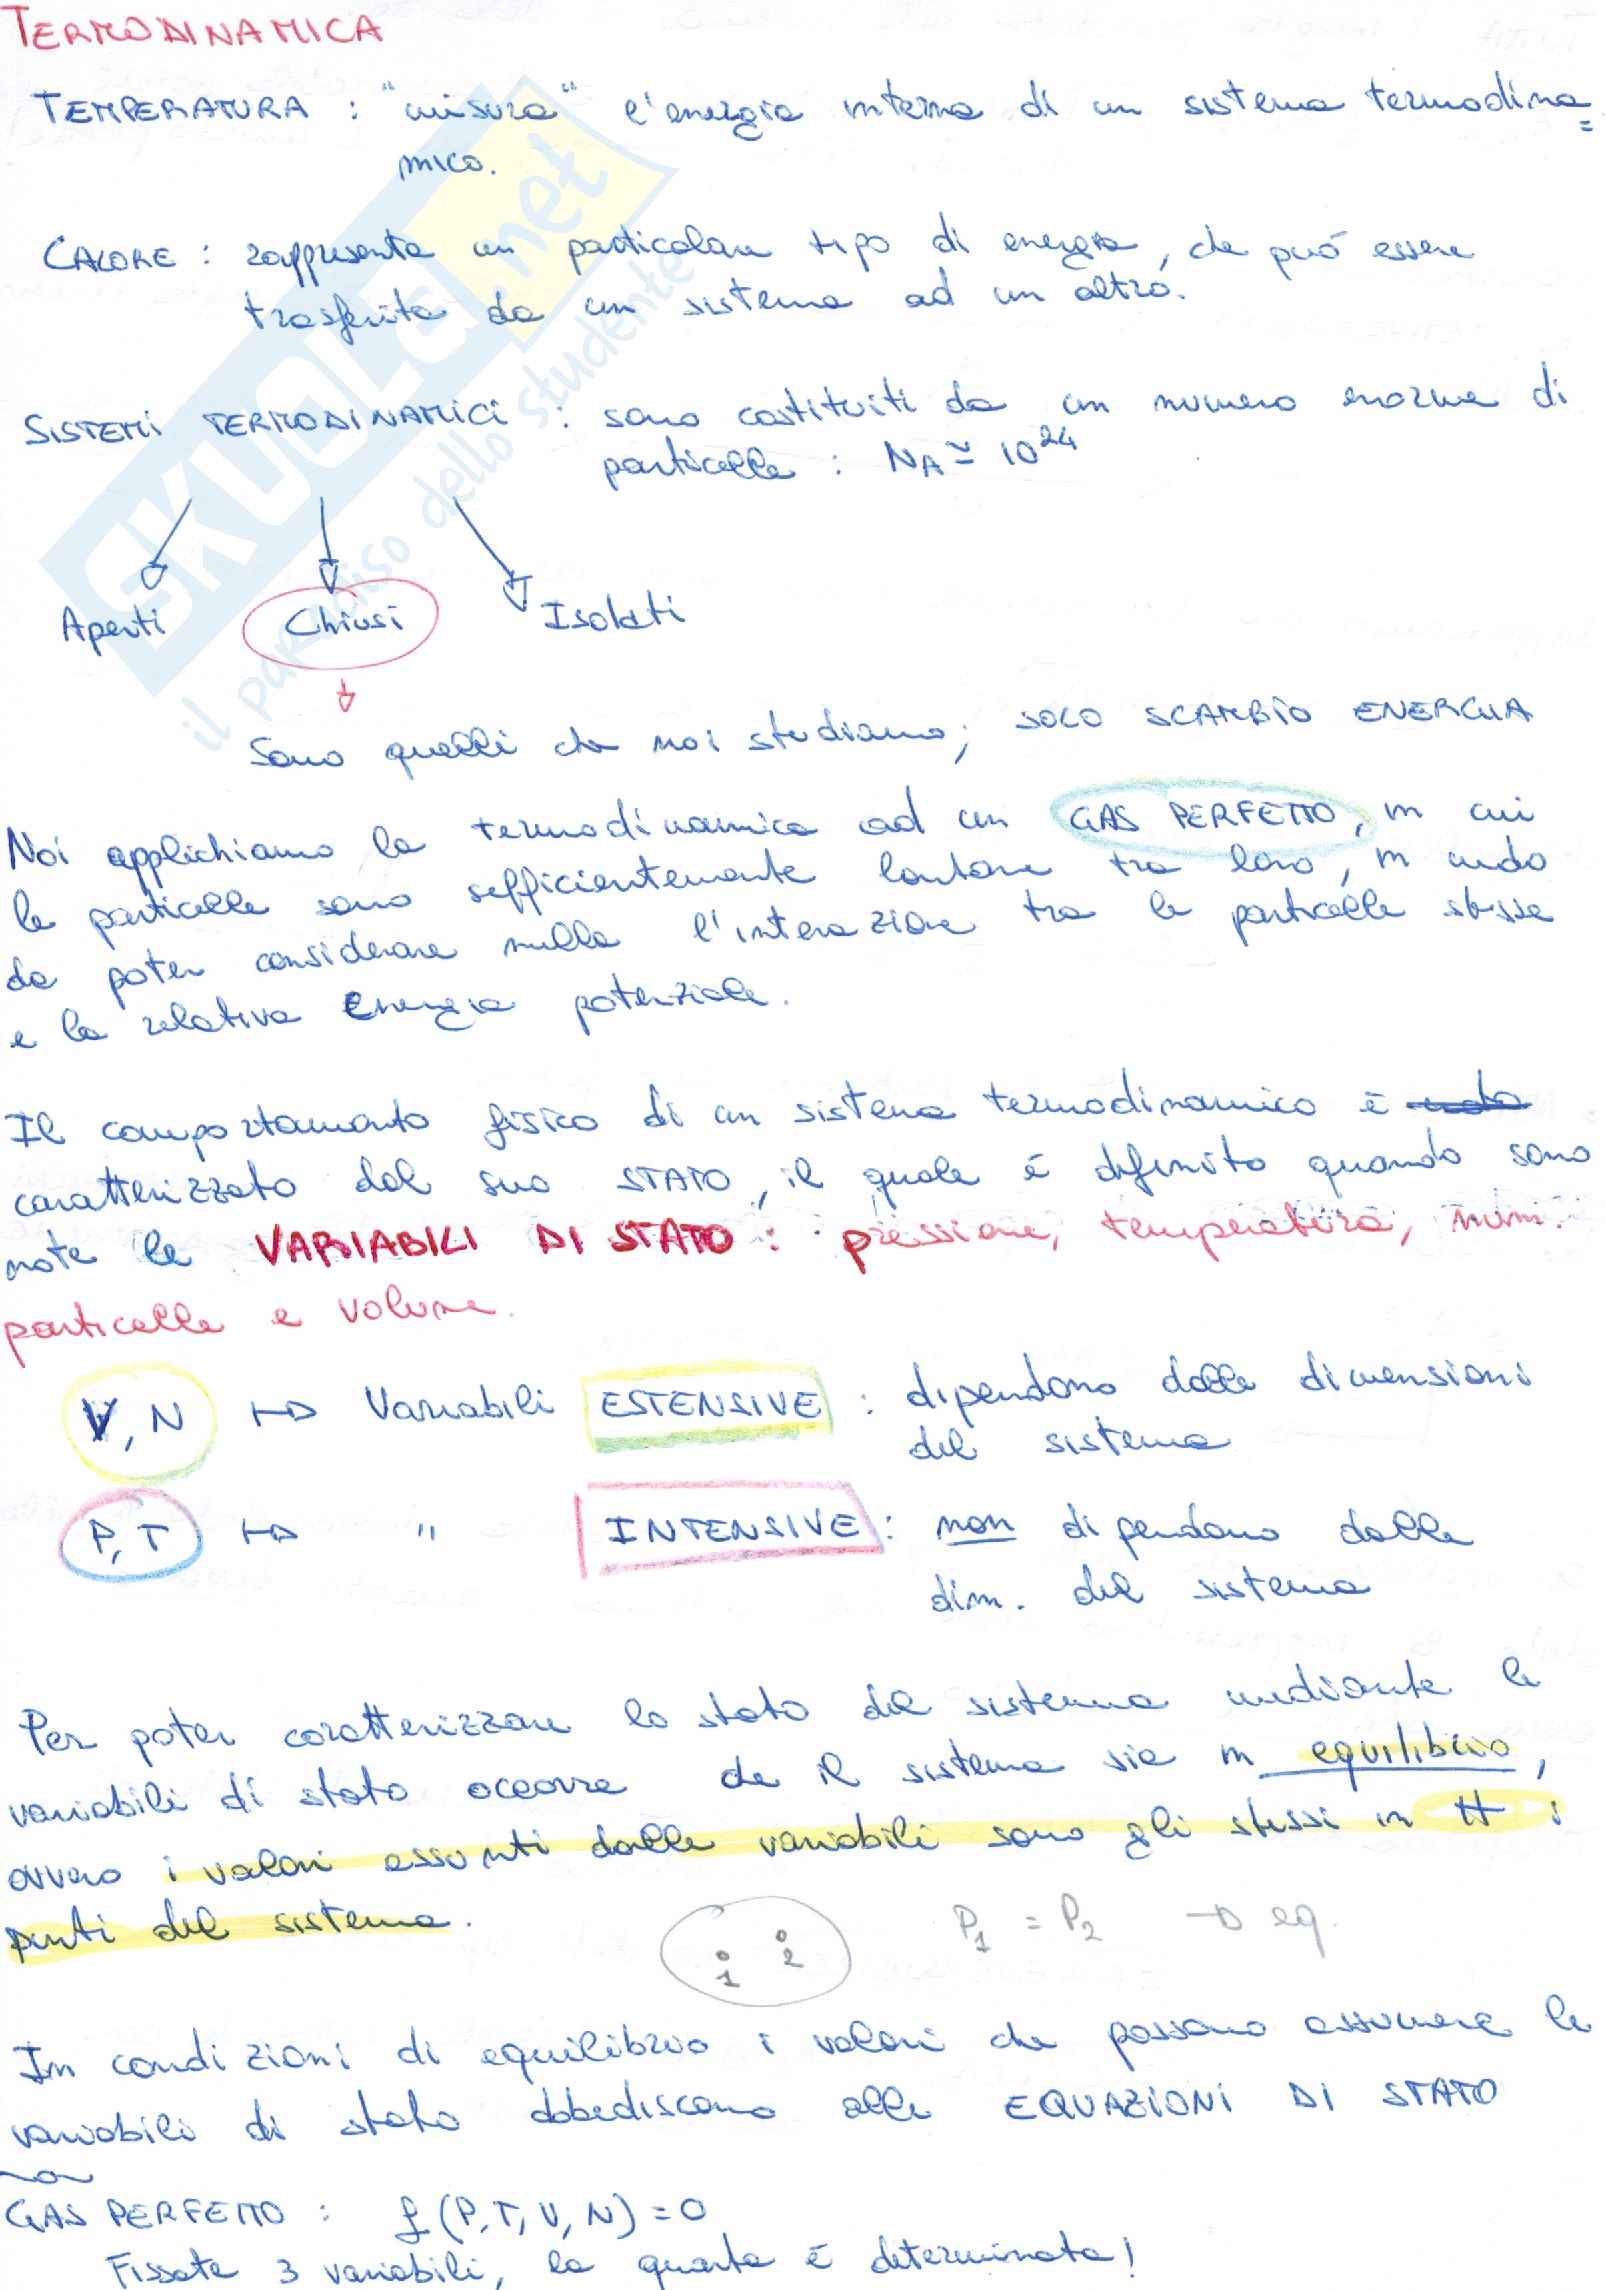 TERMODINAMICA
TEMPERATURA : "misura" l'energia interna di un sistema termodina=
mico.
CALORE : rappresenta un particolare tipo di energia, che può essere
trasferita da un sistema ad un altro.
SISTEMI TERMODINAMICI : sono costituiti da un numero enorme di
particelle : NA ≃ 10^24
Aperti Chiusi Isolati
Sono quelli che noi studiamo; SOLO SCAMBIO ENERGIA
Noi applichiamo la termodinamica ad un GAS PERFETTO, in cui
le particelle sono sufficientemente lontane tra loro, in modo
da poter considerare nulla l'interazione tra le particelle stesse
e la relativa energia potenziale.
Il comportamento fisico di un sistema termodinamico è
caratterizzato dal suo STATO, il quale è definito quando sono
note le VARIABILI DI STATO : pressione, temperatura, num.
particelle e volume.
V, N ↦ Variabili ESTENSIVE : dipendono dalle dimensioni
del sistema
P, T ↦ " INTENSIVE : non dipendono dalle
dim. del sistema
Per poter caratterizzare lo stato del sistema mediante le
variabili di stato occorre che il sistema sia in equilibrio,
ovvero i valori assunti dalle variabili sono gli stessi in tt i
punti del sistema.
1 2 P1 = P2 → eq.
In condizioni di equilibrio i valori che possono assumere le
variabili di stato obbediscono alle EQUAZIONI DI STATO
GAS PERFETTO : f (P, T, V, N) = 0
Fissate 3 variabili, la quarta è determinata!
SKUOLA.net
il paradiso dello studente